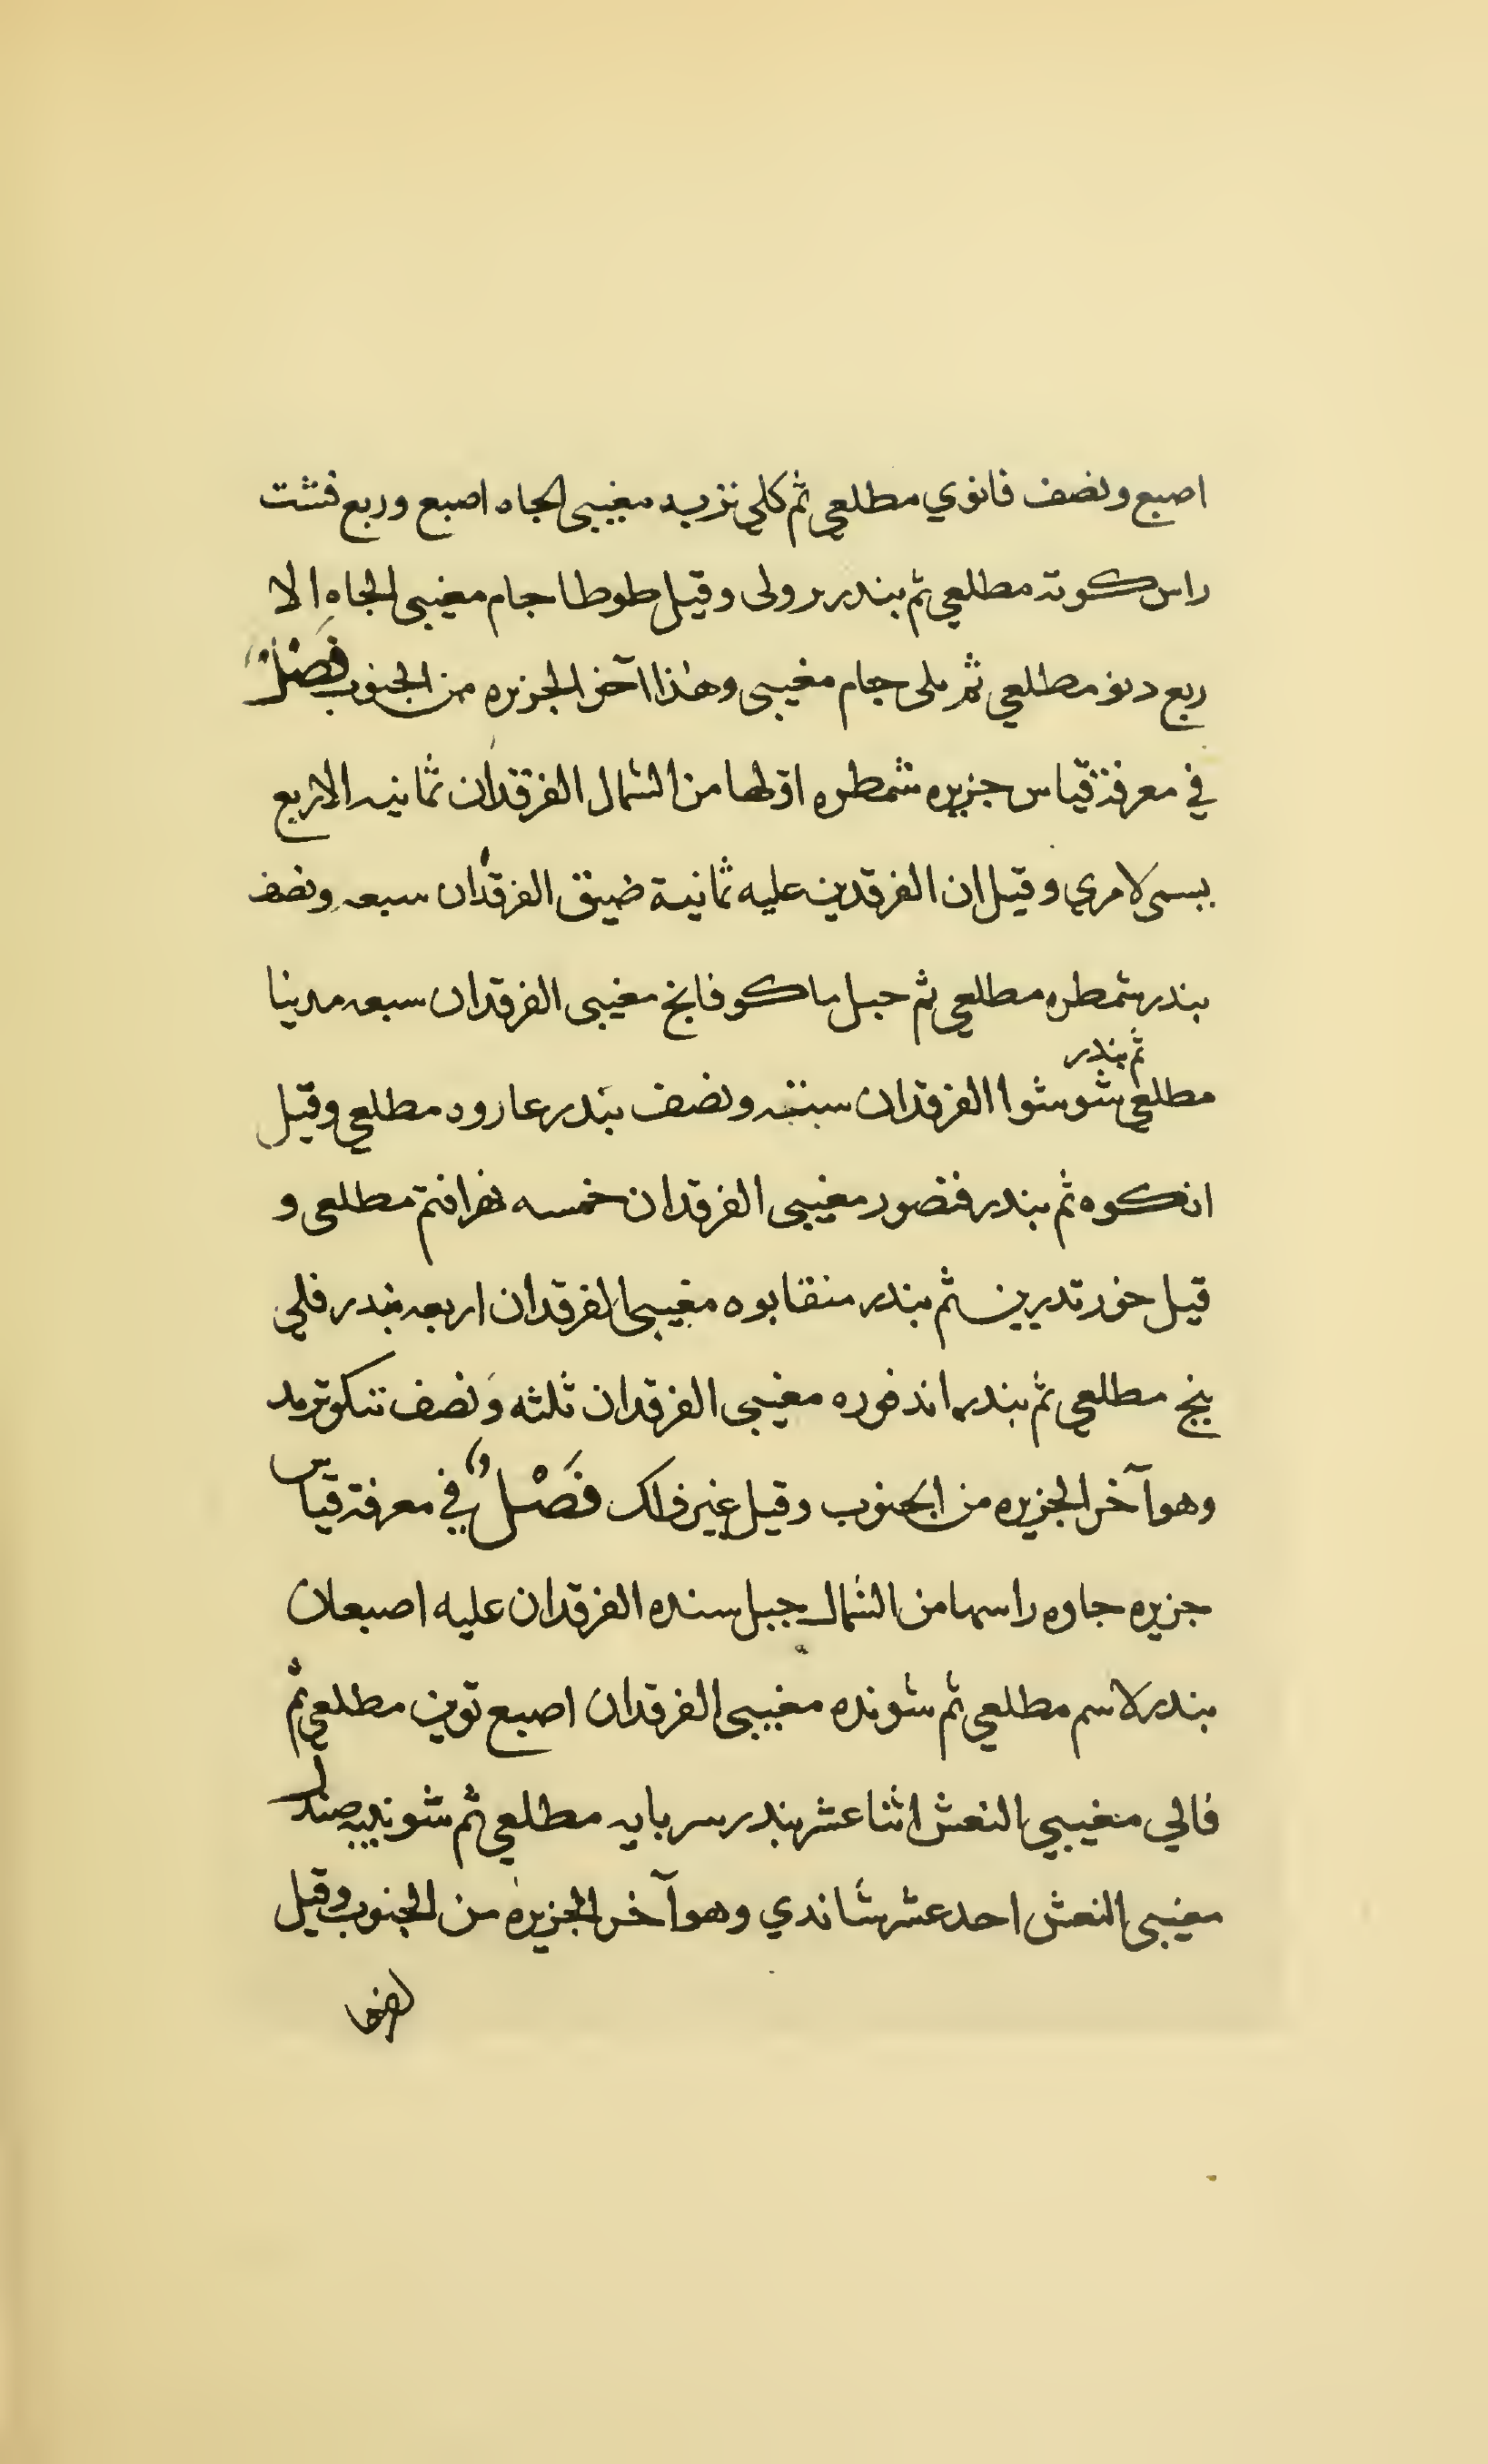 اصبع ونصف فانوي مطلعي ثم كلي نزيد مغيبي الجاه اصبع وربع فتشت
راس كوته مطلعي ثم بندر برولى وقيل طوطا جام مغيبي الجاه الا
ربع دنوز مطلعي ثم ملى جام مغيبى وهذا آخر الجزيره من الجنوب فَصْلٌ
في معرفة قياس جزيره شمطره اولها من الشمال الفرقدان ثمانيه الا ربع
بسمى لامري وقيل ان الفرقدين عليه ثمانية ضيق الفرقدان سبعه ونصف
بندر شمطره مطلعي ثم جبل ماكوفانج مغيبى الفرقدان سبعه مدينا
ثم بندر
مطلعي شوشوا الفرقدان ستة ونصف بندر عارود مطلعي وقيل
انكوه ثم بندر فنصور مغيبى الفرقدان خمسه فرافتم مطلعى و
قيل خور تدرين ثم بندر منقابوه مغيبى الفرقدان اربعه بندر فلي
بنج مطلعي ثم بندر اندفوره مغيبى الفرقدان ثلثه ونصف تنكوترمد
وهو آخر الجزيره من الجنوب وقيل غير ذلك فَصْلٌ في معرفة قياس
جزيره جاوه راسها من الشمال جبل سنده الفرقدان عليه اصبعان
بندر لاسم مطلعي ثم شونده مغيبى الفرقدان اصبع توين مطلعي ثم
فالي مغيبي النعش اثنا عشر بندر سربايه مطلعي ثم شونديبه صندل
مغيبى النعش احد عشر شاندي وهو آخر الجزيره من الجنوب وقيل